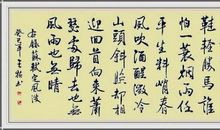 怕一蓑烟雨任
平生料峭春
風吹酒醒微冷
山頭斜照却相
迎回首向來蕭
瑟處歸去也無
風雨也無晴
右錄蘇軾定風波
癸巳年
書